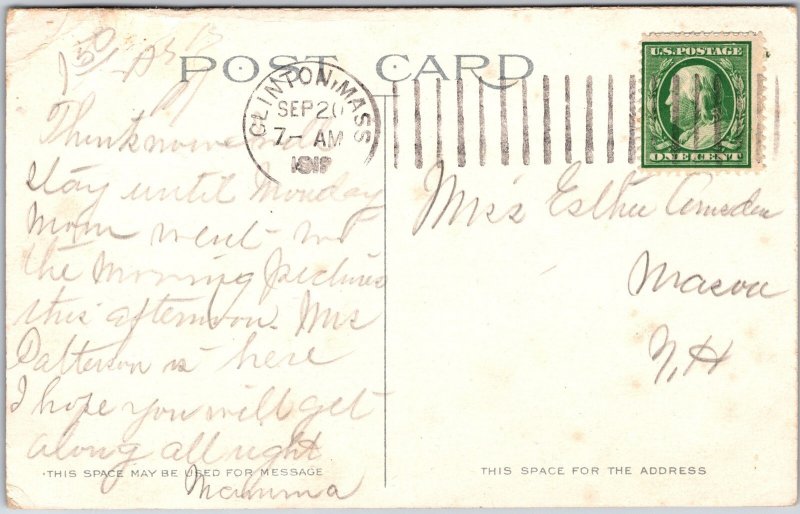 POST CARD
CLINTON, MASS
SEP 20
7- AM
U.S. POSTAGE
ONE CENT
Think
stay until Monday
Mom went
the Moving Pictures
this afternoon. Mrs
Patterson is here
I hope you will get
along all right
Mamma
Miss Esther Amsden
Mason
N, H
THIS SPACE MAY BE USED FOR MESSAGE
THIS SPACE FOR THE ADDRESS